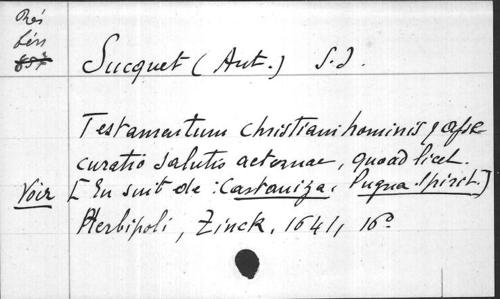 Rés
Lén
857
Sucquet (Ant.) S.J.
Testamentum christiani hominis, asse-
curatio salutis aeternae, quoad licet.
Voir [En suite de : Castaniza, Pugna spirit.]
Herbipoli, Zinck, 1641, 16°